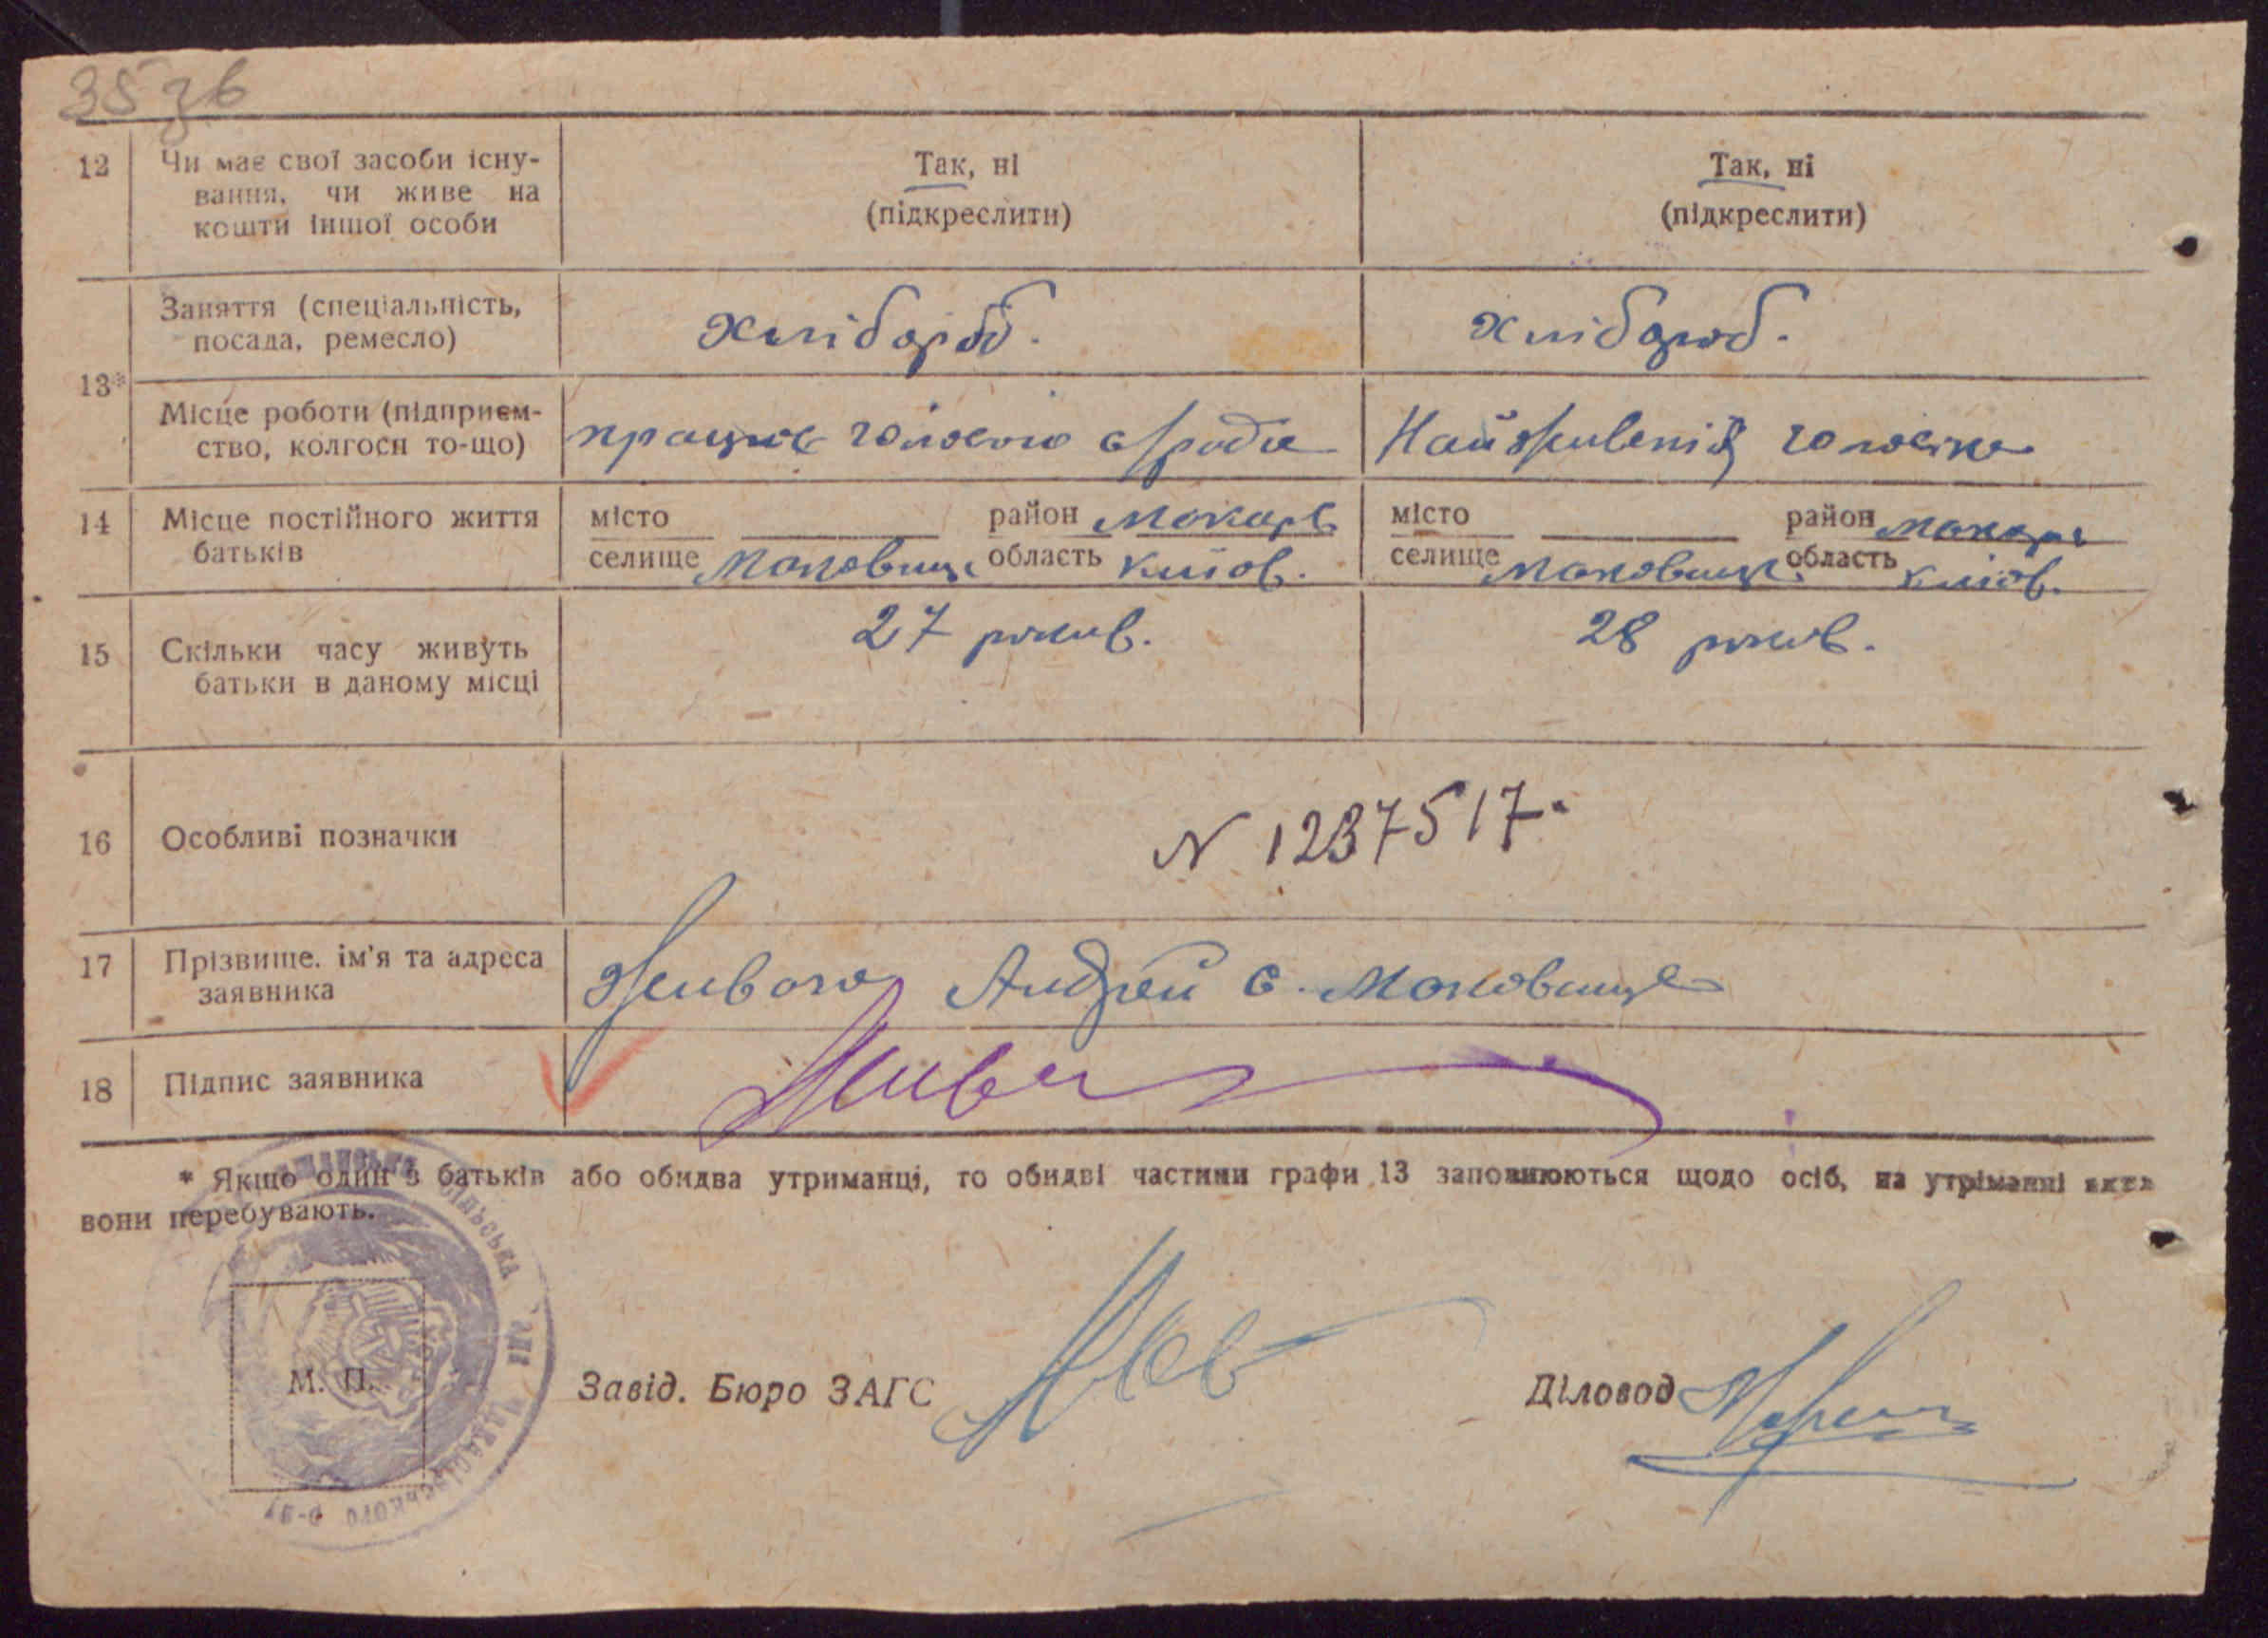 35 зв
12 Чи має свої засоби існу- Так, ні Так, ні
вання, чи живе на (підкреслити) (підкреслити)
кошти іншої особи
13*
Заняття (спеціальність, хлібороб. хлібороб.
посада, ремесло)
Місце роботи (підприєм- працює головою
ство, колгосп то-що)
14 Місце постійного життя місто район Макарів місто район Макарів
батьків селище Маковище область Київ. селище Маковище область Київ.
15 Скільки часу живуть 27 років. 28 років.
батьки в даному місці
16 Особливі позначки N 1237517.
17 Прізвище. ім'я та адреса Андрій с. Маковище
заявника
18 Підпис заявника
* Якщо один з батьків або обидва утриманці, то обидві частини графи 13 заповнюються щодо осіб, на утріманні
вони перебувають.
М. П.
Завід. Бюро ЗАГС Діловод